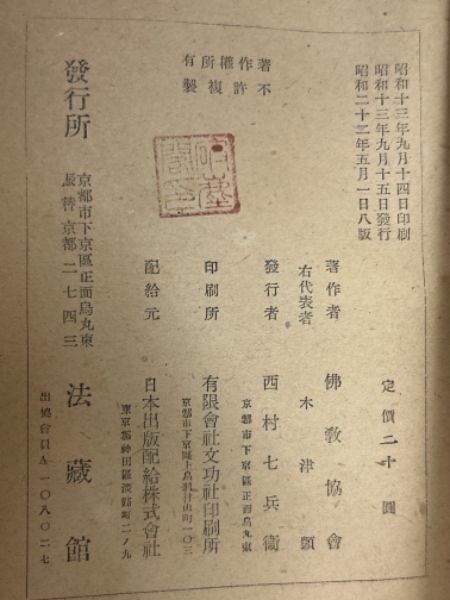 昭和十三年九月十四日印刷
昭和十三年九月十五日發行
昭和二十二年五月一日八版
定價二十圓
不許複製
著作權所有
著作者 佛教協會
右代表者 木津顗
發行者 西村七兵衞
京都市下京區正面烏丸東
印刷所 有限會社文功社印刷所
京都市下京區上鳥羽 町一〇三
配給元 日本出版配給株式會社
東京都神田區淡路町二ノ九
發行所 京都市下京區正面烏丸東
振替京都二七四三
法藏館
出協會員A一〇八〇二七